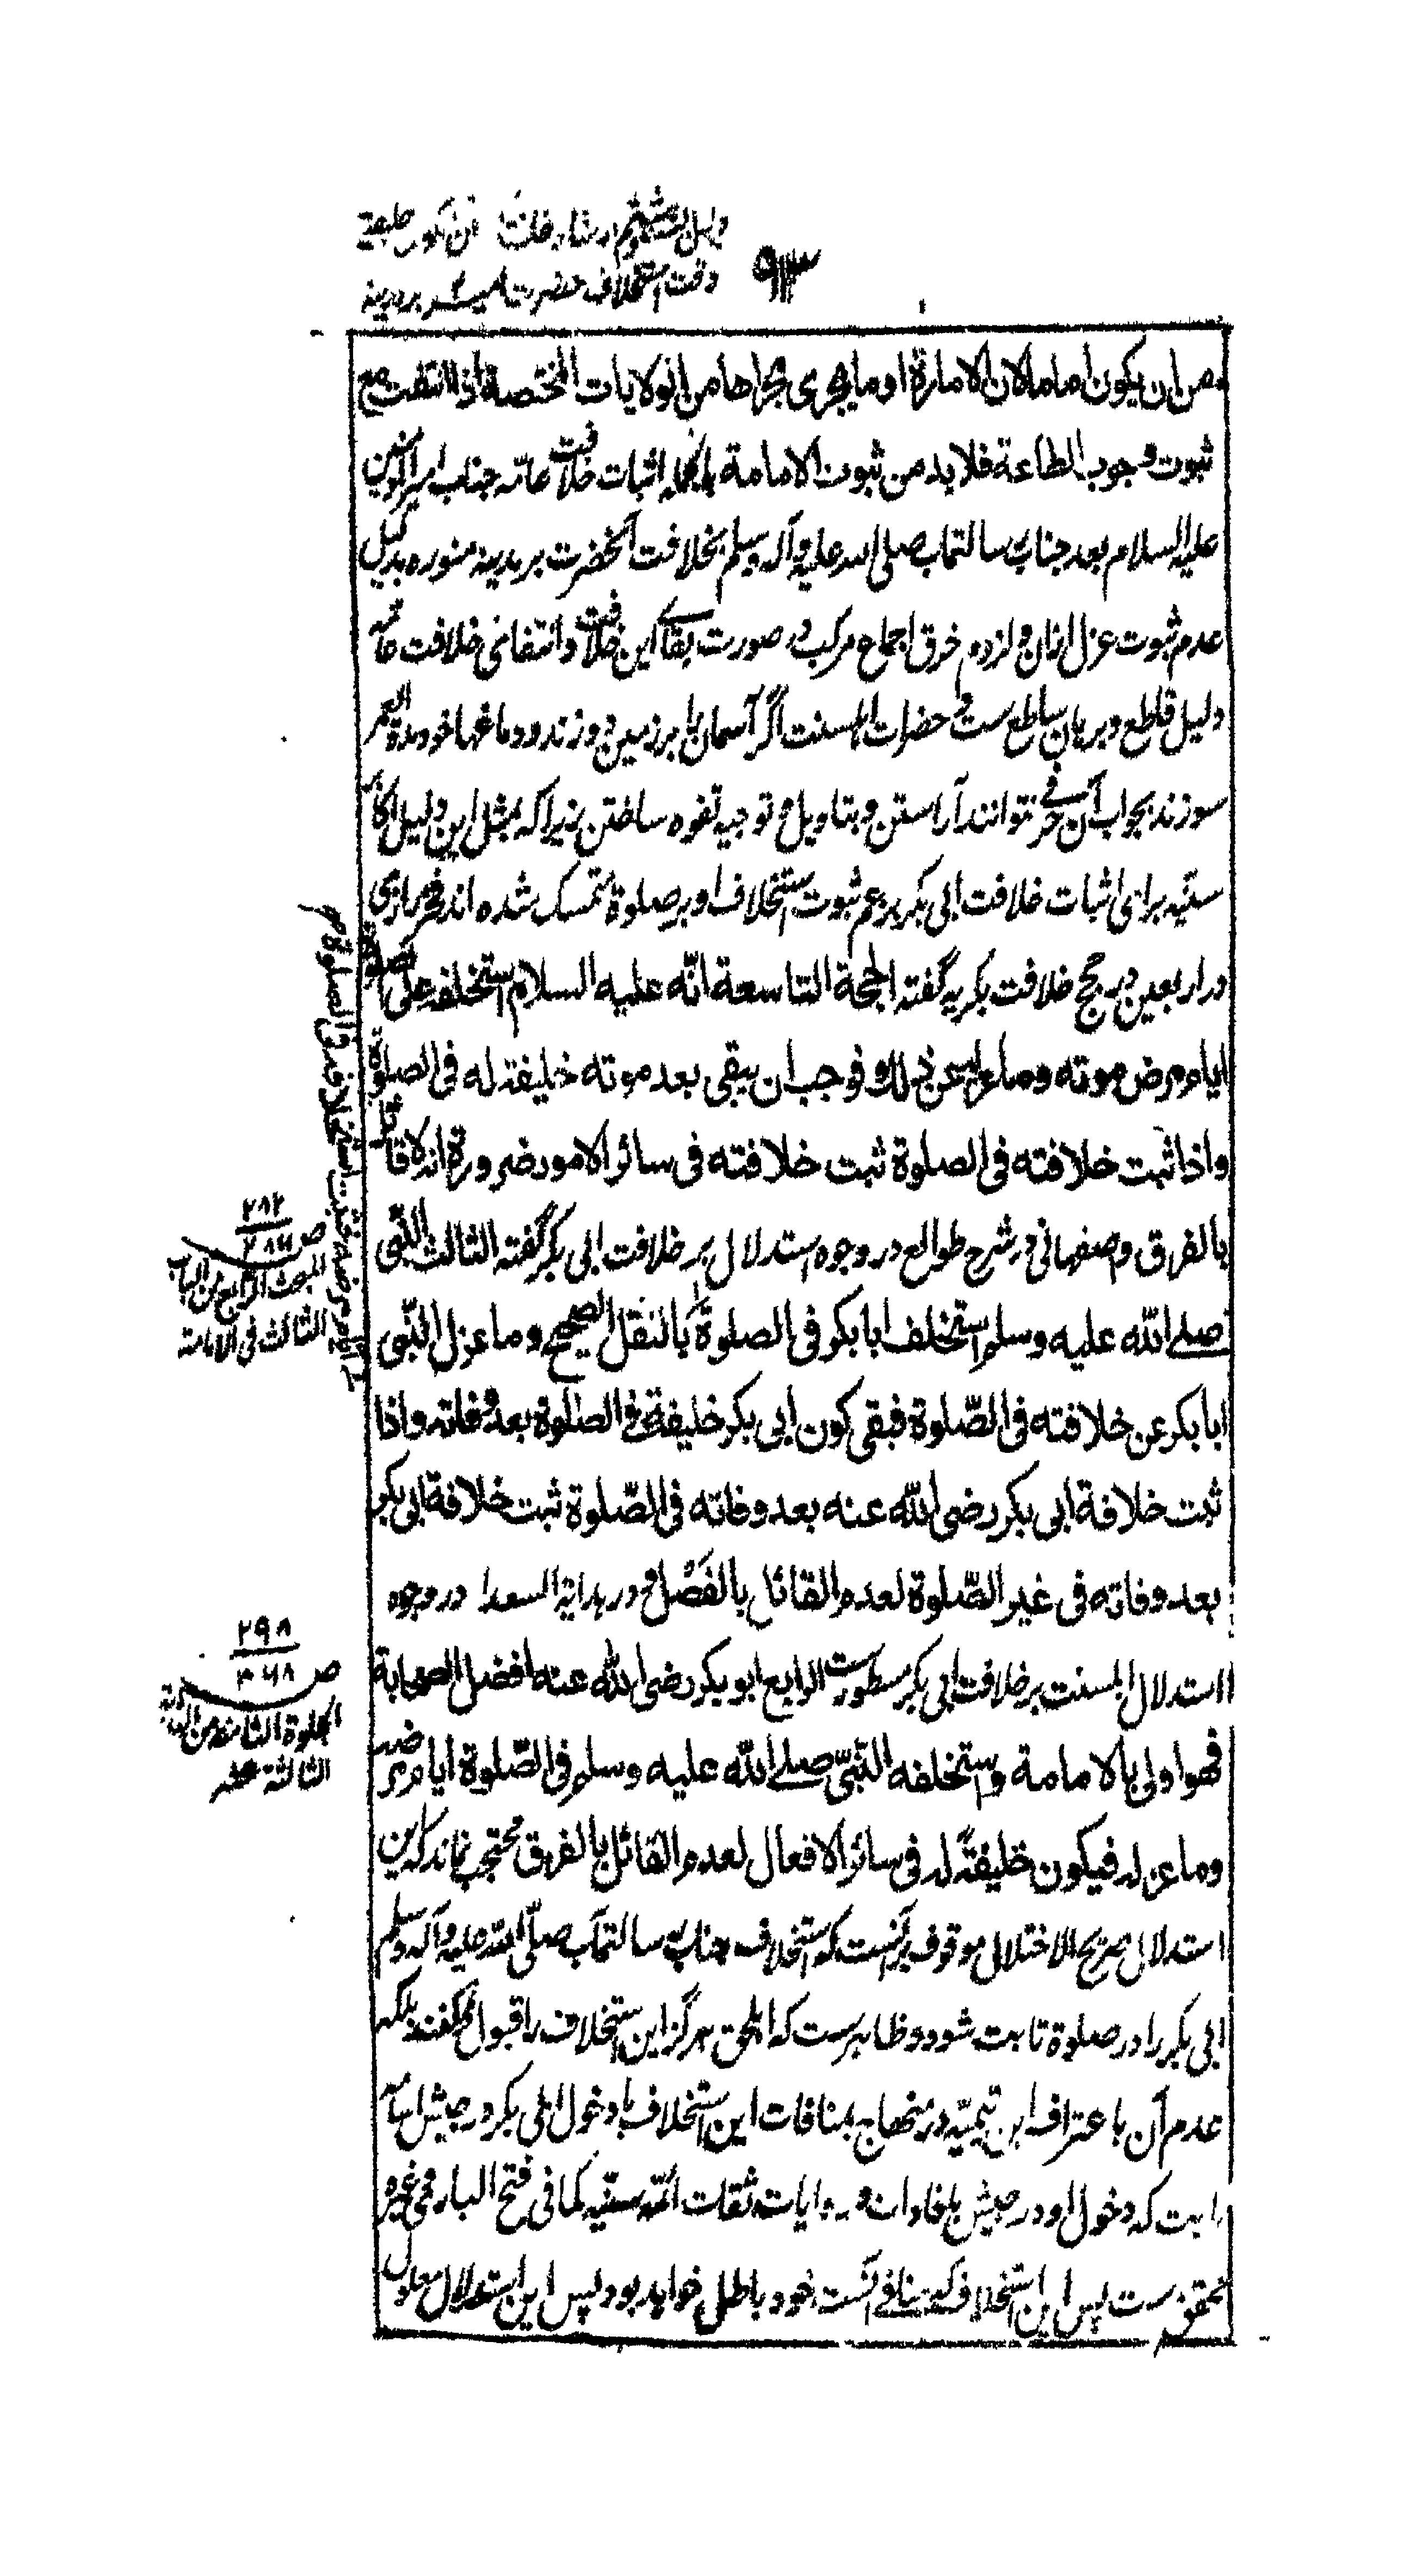 ۹۱۳
وقت استخلاف حضرت بر مدینه
من ان یکون اماما لان الامارة او ما یجری مجراها من الولایات المختصة اذا انتفت مع
ثبوت وجوب الطاعة فلا بد من ثبوت الامامة بالجمله اثبات خلافت عامّه جناب امیرالمؤمنین
علیه السلام بعد جناب رسالتمآب صلی الله علیه وآله وسلم بخلافت آنحضرت بر مدینه منوره بدلیل
عدم ثبوت عزل ازان و لزوم خرق اجماع مرکب در صورت بقای این خلافت و انتفای خلافت عامّه
دلیل قاطع و برهان ساطع ست و حضرات اهلسنت اگر آسمان را بر زمین دوزند و دماغها خود مدة العمر
سوزند بجواب آن حرفی نتوانند آراستن و بتاویل و توجیه تفوه ساختن زیراکه بمثل این دلیل اکابر
سنّیه برای اثبات خلافت ابی بکر بزعم ثبوت استخلاف او بر صلوة متمسک شده اند فخر رازی
در اربعین در حجج خلافت بکریه گفته الحجة التاسعة انّه علیه السلام استخلفه علی الصلوة
ایام مرض موته وما عزله عن ذلک فوجب ان یبقی بعد موته خلیفة له فی الصلوة
واذا ثبت خلافته فی الصلوة ثبت خلافته فی سائر الامور ضرورة انه لا قائل
بالفرق و اصفهانی در شرح طوالع در وجوه استدلال بر خلافت ابی بکر گفته الثالث النّبی
صلی الله علیه وسلم استخلف ابا بکر فی الصلوة بالنقل الصحیح وما عزل النّبی
ابا بکر عن خلافته فی الصّلوة فبقی کون ابی بکر خلیفة فی الصلوة بعد وفاته واذا
ثبت خلافة ابی بکر رضی الله عنه بعد وفاته فی الصّلوة ثبت خلافة ابی بکر
بعد وفاته فی غیر الصّلوة لعدم القائل بالفصل و در هدایة السعدا در وجوه
استدلال اهلسنت بر خلافت ابی بکر مسطورست الرابع ابو بکر رضی الله عنه افضل الصحابة
فهو اولی بالامامة واستخلفه النّبیّ صلی الله علیه وسلم فی الصّلوة ایام مرضه
وما عزله فیکون خلیفة له فی سائر الافعال لعدم القائل بالفرق محتجب نماند که این
استدلال صریح الاختلال موقوف برآنست که استخلاف جناب رسالتمآب صلّی الله علیه وآله وسلم
ابی بکر را در صلوة ثابت شود و ظاهرست که اهل حق هرگز این استخلاف را قبول نمیکنند بلکه
عدم آن باعتراف ابن تیمیّه در منهاج بمنافات این استخلاف با دخول ابی بکر در جیش اسامه
ثابت که دخول او در جیش بافادات و روایات ثقات ائمّه سنّیه کما فی فتح الباری وغیره
محقق ست پس این استخلاف که منافی آنست خود باطل خواهد بود پس این استدلال معلول
ص ۲۸۲
المبحث الرابع من الباب
الثالث فی الامامة
ص ۲۹۸
۳۶۸
الجلوة الثامنة من الهدایة
الثالثة عشر